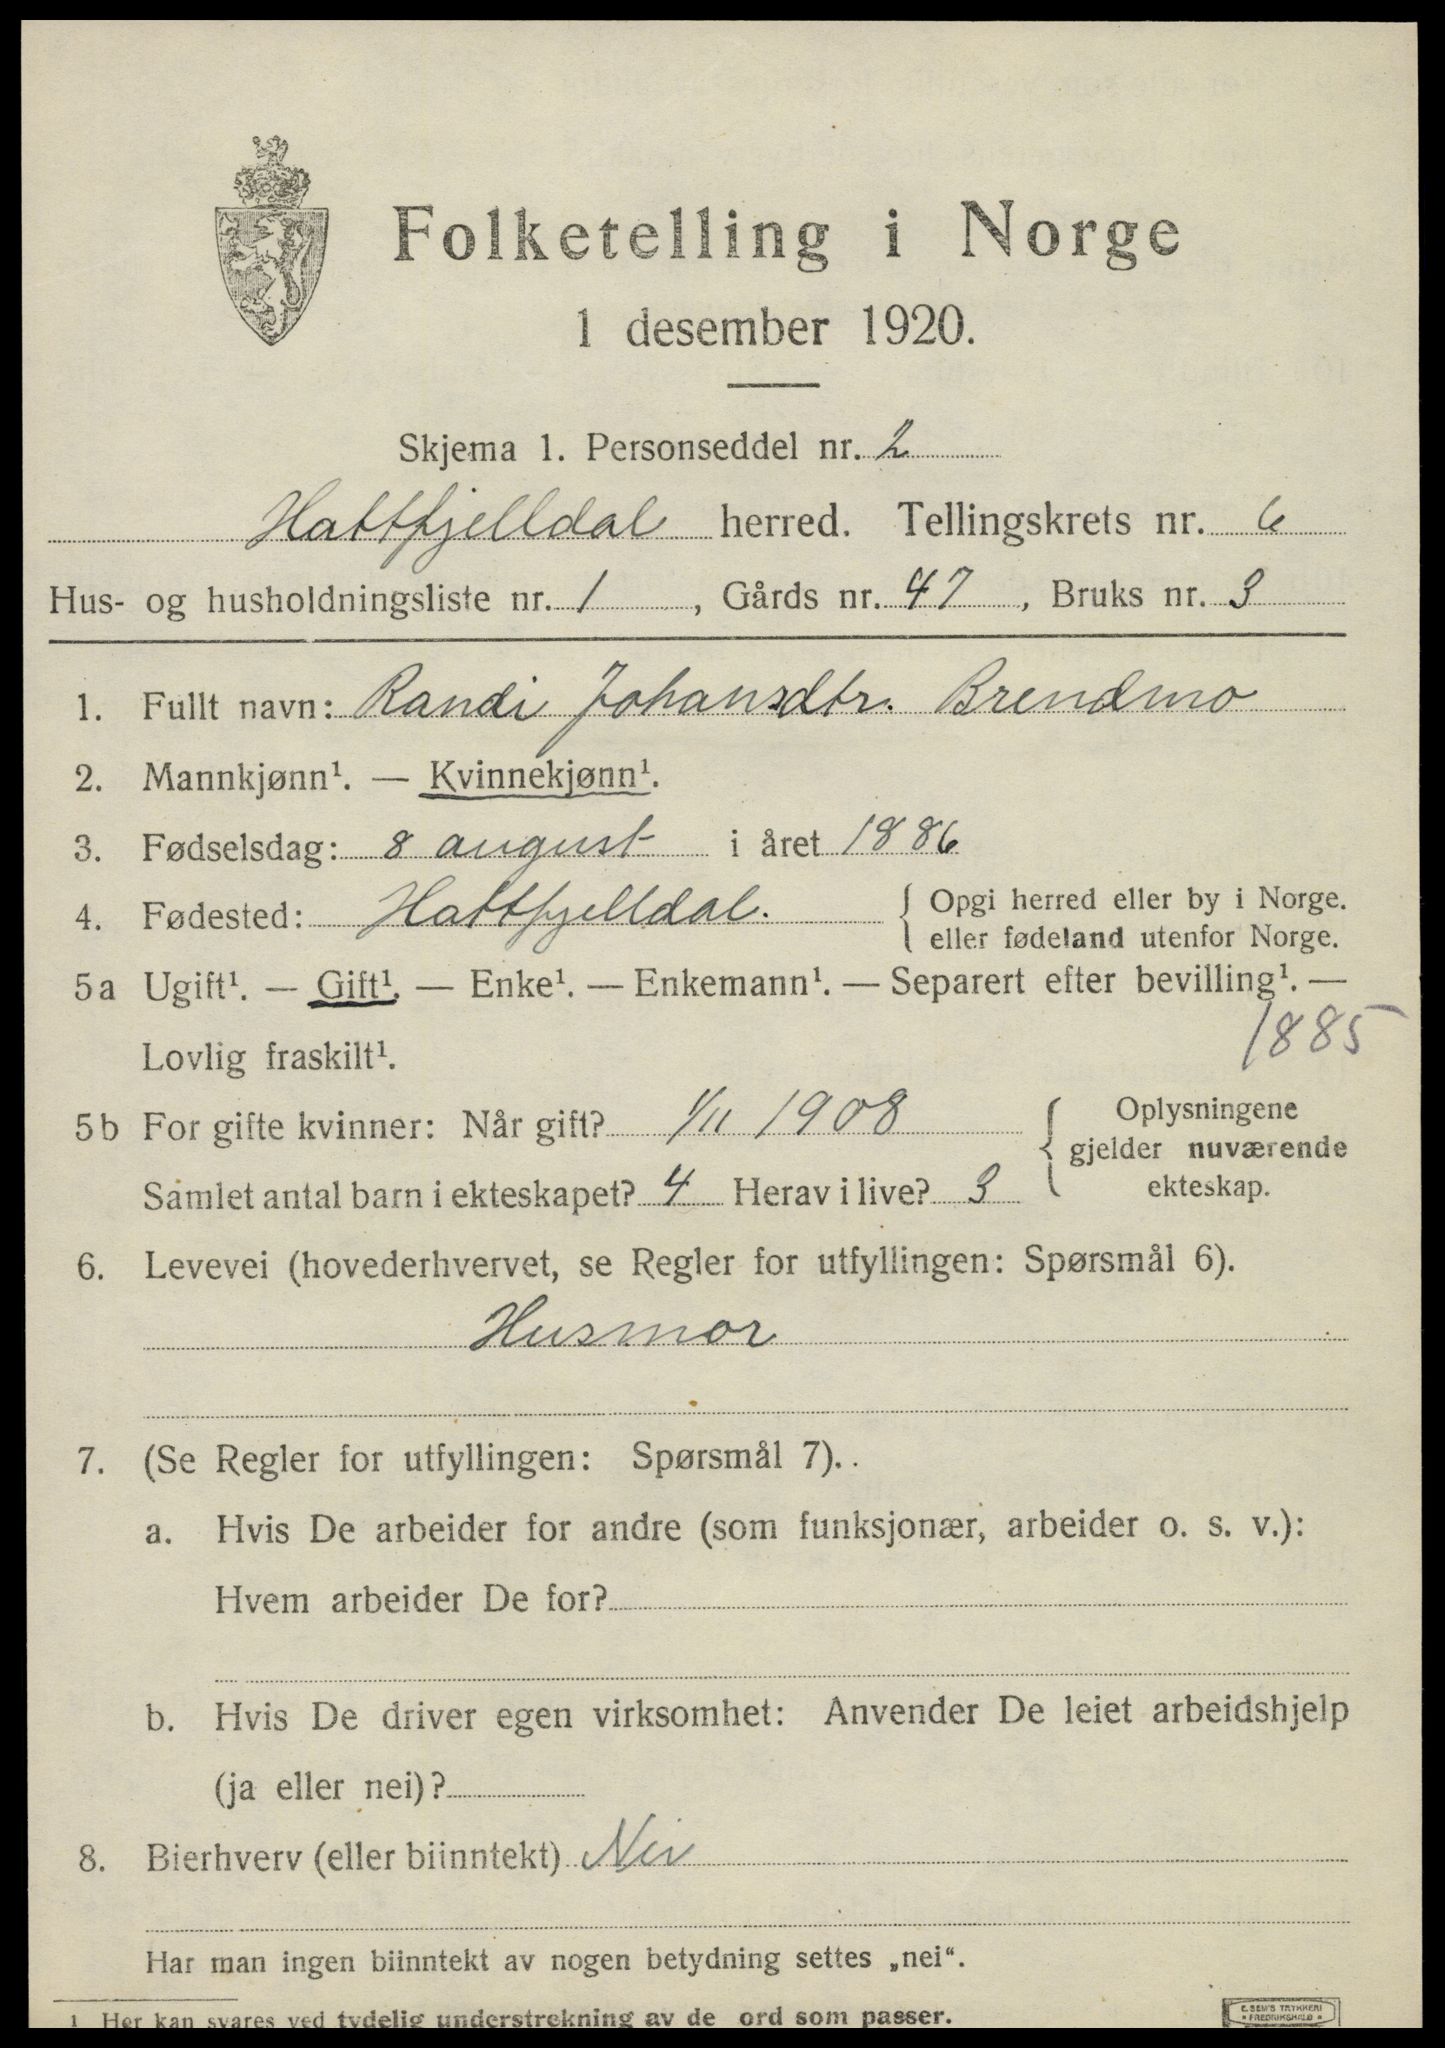 Folketelling i Norge
1 desember 1920.
Skjema 1. Personseddel nr. 2
Hattfjelldal herred. Tellingskrets nr. 6
Hus- og husholdningsliste nr. 1, Gårds nr. 47, Bruks nr. 3
1. Fullt navn: Randi Johansdtr. Brendmo
2. Mannkjønn¹. — Kvinnekjønn¹.
3. Fødselsdag: 8 august i året 1886
4. Fødested: Hattfjelldal. { Opgi herred eller by i Norge.
eller fødeland utenfor Norge.
5a Ugift¹. — Gift¹. — Enke¹. — Enkemann¹. — Separert efter bevilling¹. —
Lovlig fraskilt¹.
1885
5b For gifte kvinner: Når gift? 1/11 1908
Samlet antal barn i ekteskapet? 4 Herav i live? 3
{ Oplysningene
gjelder nuværende
ekteskap.
6. Levevei (hovederhvervet, se Regler for utfyllingen: Spørsmål 6).
Husmor
7. (Se Regler for utfyllingen: Spørsmål 7)..
a. Hvis De arbeider for andre (som funksjonær, arbeider o. s. v.):
Hvem arbeider De for?
b. Hvis De driver egen virksomhet: Anvender De leiet arbeidshjelp
(ja eller nei)?
8. Bierhverv (eller biinntekt) Nei
Har man ingen biinntekt av nogen betydning settes „nei“.
1 Her kan svares ved tydelig understrekning av de ord som passer.
E. SEM'S TRYKKERI
* FREDRIKSHALD *